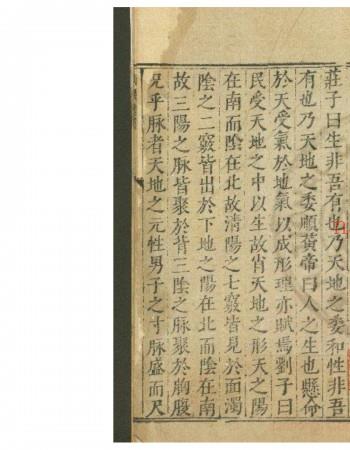 莊子曰生非吾有也乃天地之委和性非吾
有也乃天地之委順黃帝曰人之生也懸命
於天受氣於地氣以成形理亦賦焉劉子曰
民受天地之中以生故肖天地之形天之陽
在南而陰在北故清陽之七竅皆見於面濁
陰之二竅皆出於下地之陽在北而陰在南
故三陽之脉皆聚於背三陰之脉聚於胸腹
況乎脉者天地之元性男子之寸脉盛而尺